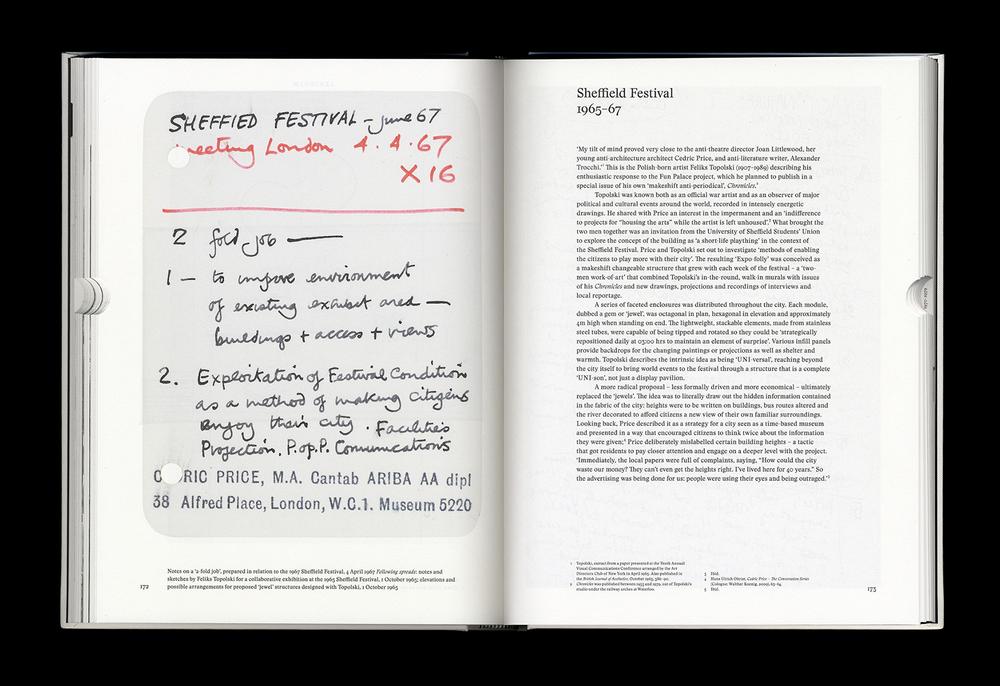 SHEFFIED FESTIVAL – June 67
meeting London 4.4.67
X 16
2 fold job —
1 – to improve environment
of existing exhibit area —
buildings + access + views
2. Exploitation of Festival Condition
as a method of making citizens
enjoy their city. Facilities
Projection, P.o.P. Comunications
C RIC PRICE, M.A. Cantab ARIBA AA dipl
38 Alfred Place, London, W.C.1. Museum 5220
Notes on a '2-fold job', prepared in relation to the 1967 Sheffield Festival, 4 April 1967 Following spreads: notes and
sketches by Feliks Topolski for a collaborative exhibition at the 1965 Sheffield Festival, 1 October 1965; elevations and
possible arrangements for proposed 'jewel' structures designed with Topolski, 1 October 1965
172
Sheffield Festival
1965–67
'My tilt of mind proved very close to the anti-theatre director Joan Littlewood, her
young anti-architecture architect Cedric Price, and anti-literature writer, Alexander
Trocchi.'¹ This is the Polish-born artist Feliks Topolski (1907–1989) describing his
enthusiastic response to the Fun Palace project, which he planned to publish in a
special issue of his own 'makeshift anti-periodical', Chronicles.²
Topolski was known both as an official war artist and as an observer of major
political and cultural events around the world, recorded in intensely energetic
drawings. He shared with Price an interest in the impermanent and an 'indifference
to projects for "housing the arts" while the artist is left unhoused'.³ What brought the
two men together was an invitation from the University of Sheffield Students' Union
to explore the concept of the building as 'a short-life plaything' in the context of
the Sheffield Festival. Price and Topolski set out to investigate 'methods of enabling
the citizens to play more with their city'. The resulting 'Expo-folly' was conceived as
a makeshift changeable structure that grew with each week of the festival – a 'two-
men work-of-art' that combined Topolski's in-the-round, walk-in murals with issues
of his Chronicles and new drawings, projections and recordings of interviews and
local reportage.
A series of faceted enclosures was distributed throughout the city. Each module,
dubbed a gem or 'jewel', was octagonal in plan, hexagonal in elevation and approximately
4m high when standing on end. The lightweight, stackable elements, made from stainless
steel tubes, were capable of being tipped and rotated so they could be 'strategically
repositioned daily at 0300 hrs to maintain an element of surprise'. Various infill panels
provide backdrops for the changing paintings or projections as well as shelter and
warmth. Topolski describes the intrinsic idea as being 'UNI-versal', reaching beyond
the city itself to bring world events to the festival through a structure that is a complete
'UNI-son', not just a display pavilion.
A more radical proposal – less formally driven and more economical – ultimately
replaced the 'jewels'. The idea was to literally draw out the hidden information contained
in the fabric of the city: heights were to be written on buildings, bus routes altered and
the river decorated to afford citizens a new view of their own familiar surroundings.
Looking back, Price described it as a strategy for a city seen as a time-based museum
and presented in a way that encouraged citizens to think twice about the information
they were given;⁴ Price deliberately mislabelled certain building heights – a tactic
that got residents to pay closer attention and engage on a deeper level with the project.
'Immediately, the local papers were full of complaints, saying, "How could the city
waste our money? They can't even get the heights right. I've lived here for 40 years." So
the advertising was being done for us: people were using their eyes and being outraged.'⁵
1 Topolski, extract from a paper presented at the Tenth Annual
Visual Communications Conference arranged by the Art
Directors Club of New York in April 1965. Also published in
the British Journal of Aesthetics, October 1965, 386–90.
2 Chronicles was published between 1953 and 1979, out of Topolski's
studio under the railway arches at Waterloo.
3 Ibid.
4 Hans Ulrich Obrist, Cedric Price – The Conversation Series
(Cologne: Walther Koenig, 2009), 63–64.
5 Ibid.
173